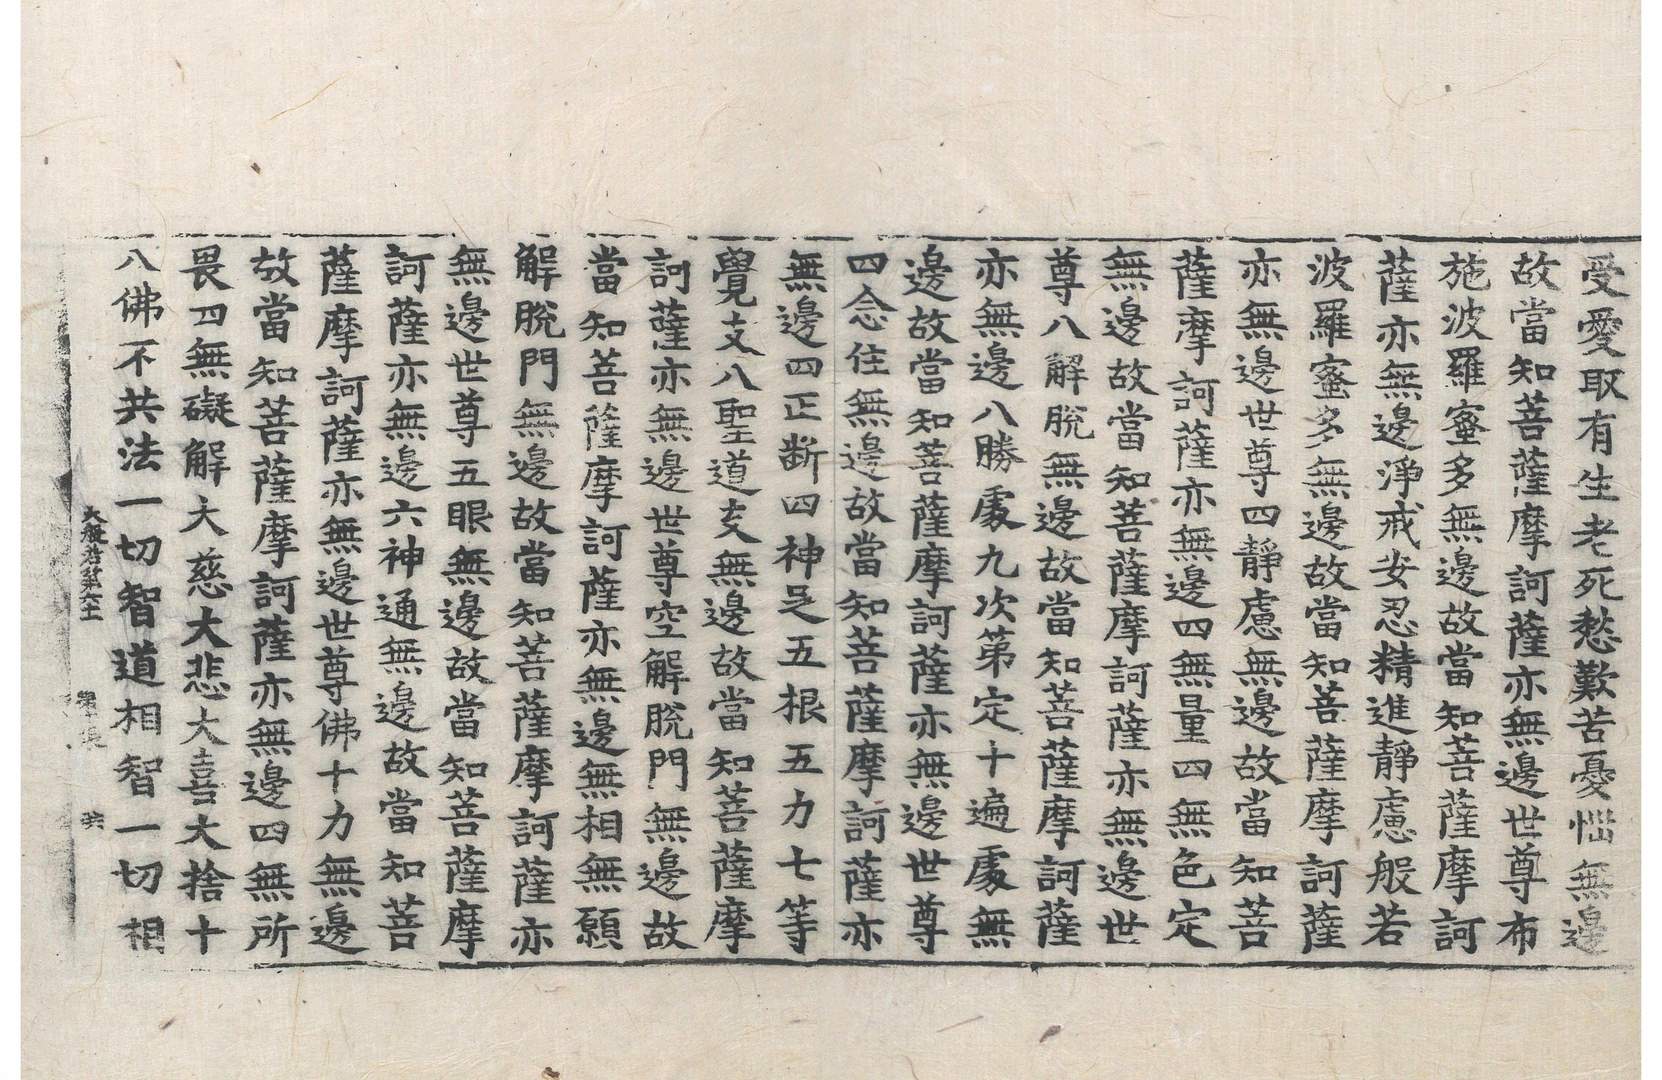 受愛取有生老死愁歎苦憂惱無邊
故當知菩薩摩訶薩亦無邊世尊布
施波羅蜜多無邊故當知菩薩摩訶
薩亦無邊淨戒安忍精進靜慮般若
波羅蜜多無邊故當知菩薩摩訶薩
亦無邊世尊四靜慮無邊故當知菩
薩摩訶薩亦無邊四無量四無色定
無邊故當知菩薩摩訶薩亦無邊世
尊八解脫無邊故當知菩薩摩訶薩
亦無邊八勝處九次第定十遍處無
邊故當知菩薩摩訶薩亦無邊世尊
四念住無邊故當知菩薩摩訶薩亦
無邊四正断四神足五根五力七等
覺支八聖道支無邊故當知菩薩摩
訶薩亦無邊世尊空解脫門無邊故
當知菩薩摩訶薩亦無邊無相無願
解脫門無邊故當知菩薩摩訶薩亦
無邊世尊五眼無邊故當知菩薩摩
訶薩亦無邊六神通無邊故當知菩
薩摩訶薩亦無邊世尊佛十力無邊
故當知菩薩摩訶薩亦無邊四無所
畏四無礙解大慈大悲大喜大捨十
八佛不共法一切智道相智一切相
大般若第六十